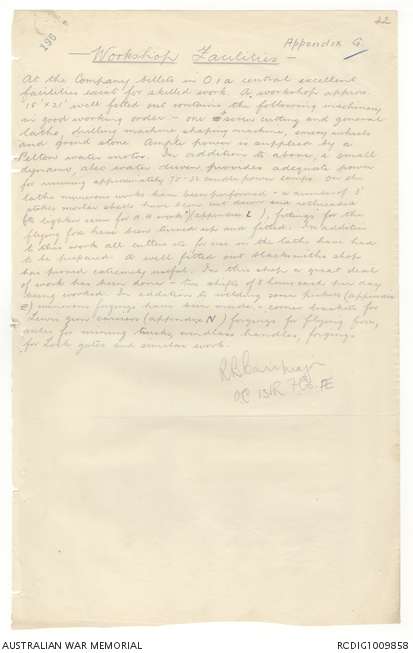 22
196
Appendix G
— Workshop Facilities —
At the Company billets in Ora central excellent
facilities exist for skilled work. A workshop approx.
15' x 21' well fitted out contains the following machinery
in good working order - one screw cutting and general
lathe, drilling machine shaping machine, emery wheels
and grind stone. Ample power is supplied by a
Pelton water motor. In addition to above, a small
dynamo, also water driven provides adequate power
for running approximately 70 - candle power lamps. On the
lathe numerous works have been performed - a number of 3"
stokes mortar shells have been cut down and rethreaded
for lighter service for a.a. work (appendix L), fittings for the
flying fox have been turned up and fitted. In addition
to this work all cutters etc for use on the lathe have had
to be prepared. A well fitted out blacksmiths shop
has proved extremely useful. In this shop a great deal
of work has been done - two shifts of 8 hours each per day
being worked. In addition to welding some pickets (appendix
E) numerous forgings have been made - corner brackets for
Lewis gun carriers (appendix N) forgings for flying foxes,
axles for running trucks, windlass handles, forgings
for lock gates and similar work.
OC 15th F Co. FE
AUSTRALIAN WAR MEMORIAL
RCDIG1009858